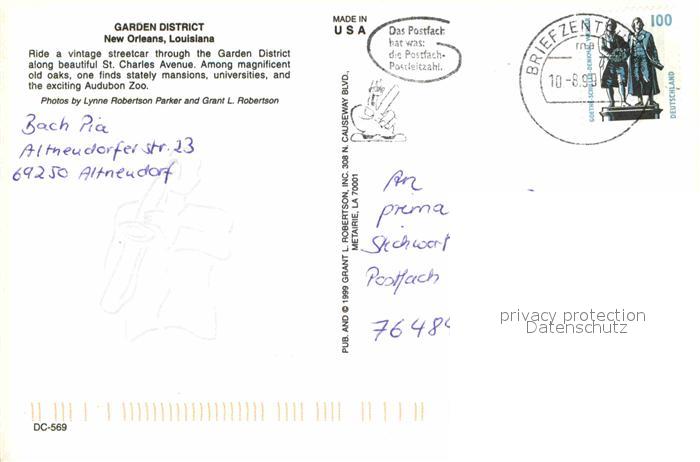 GARDEN DISTRICT
New Orleans, Louisiana
Ride a vintage streetcar through the Garden District
along beautiful St. Charles Avenue. Among magnificent
old oaks, one finds stately mansions, universities, and
the exciting Audubon Zoo.
Photos by Lynne Robertson Parker and Grant L. Robertson
Bach Pia
Altneudorfer str. 23
69250 Altneudorf
DC-569
PUB. AND © 1999 GRANT L. ROBERTSON, INC. 308 N. CAUSEWAY BLVD.,
METAIRIE, LA 70001
MADE IN
USA
Das Postfach
hat was:
die Postfach-
Postleitzahl.
BRIEFZENT
ma
10-8.99
100
DEUTSCHLAND
GOETHE-SCHILLER-DENKMAL
An
prima
Stichwort
Postfach
7648
privacy protection
Datenschutz